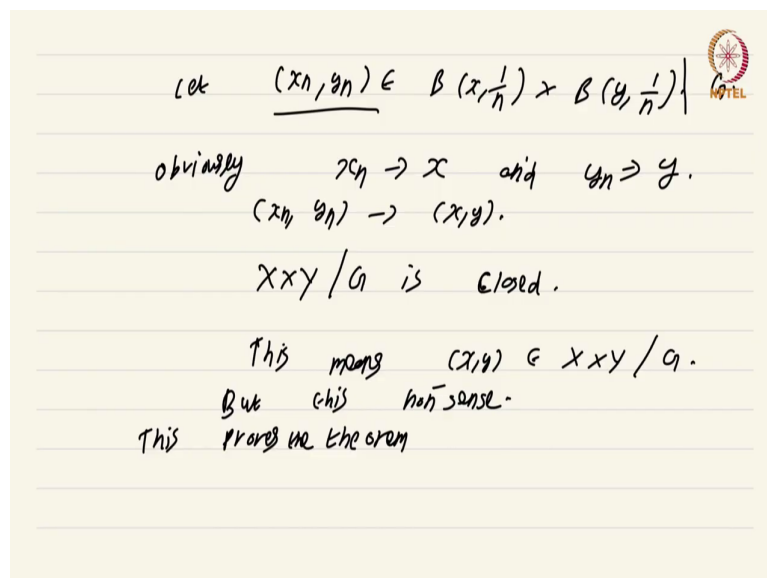 Let (xn, yn) ∈ B(x, 1/n) × B(y, 1/n) \ G
NPTEL
obviously xn → x and yn → y.
(xn, yn) → (x,y).
X×Y / G is closed.
This means (x,y) ∈ X×Y / G.
But this nonsense.
This proves the theorem